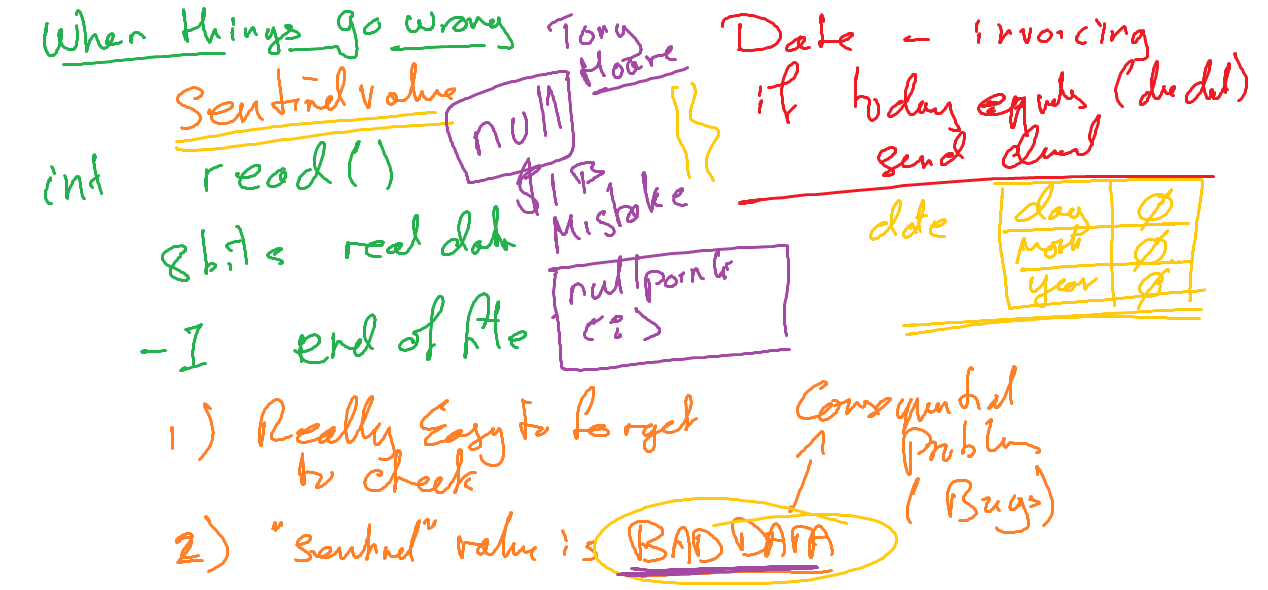 When things go wrong
Sentinel value
int read()
8 bits real data
-1 end of file
Tony
Hoare
null
$1B
Mistake
nullpointr
(i)
Date - invoicing
if today equals (due dat)
send
date
day 0
month 0
year 0
1) Really Easy to forget
to check
2) "sentinel" value is BAD DATA
Consequential
Problems
(Bugs)